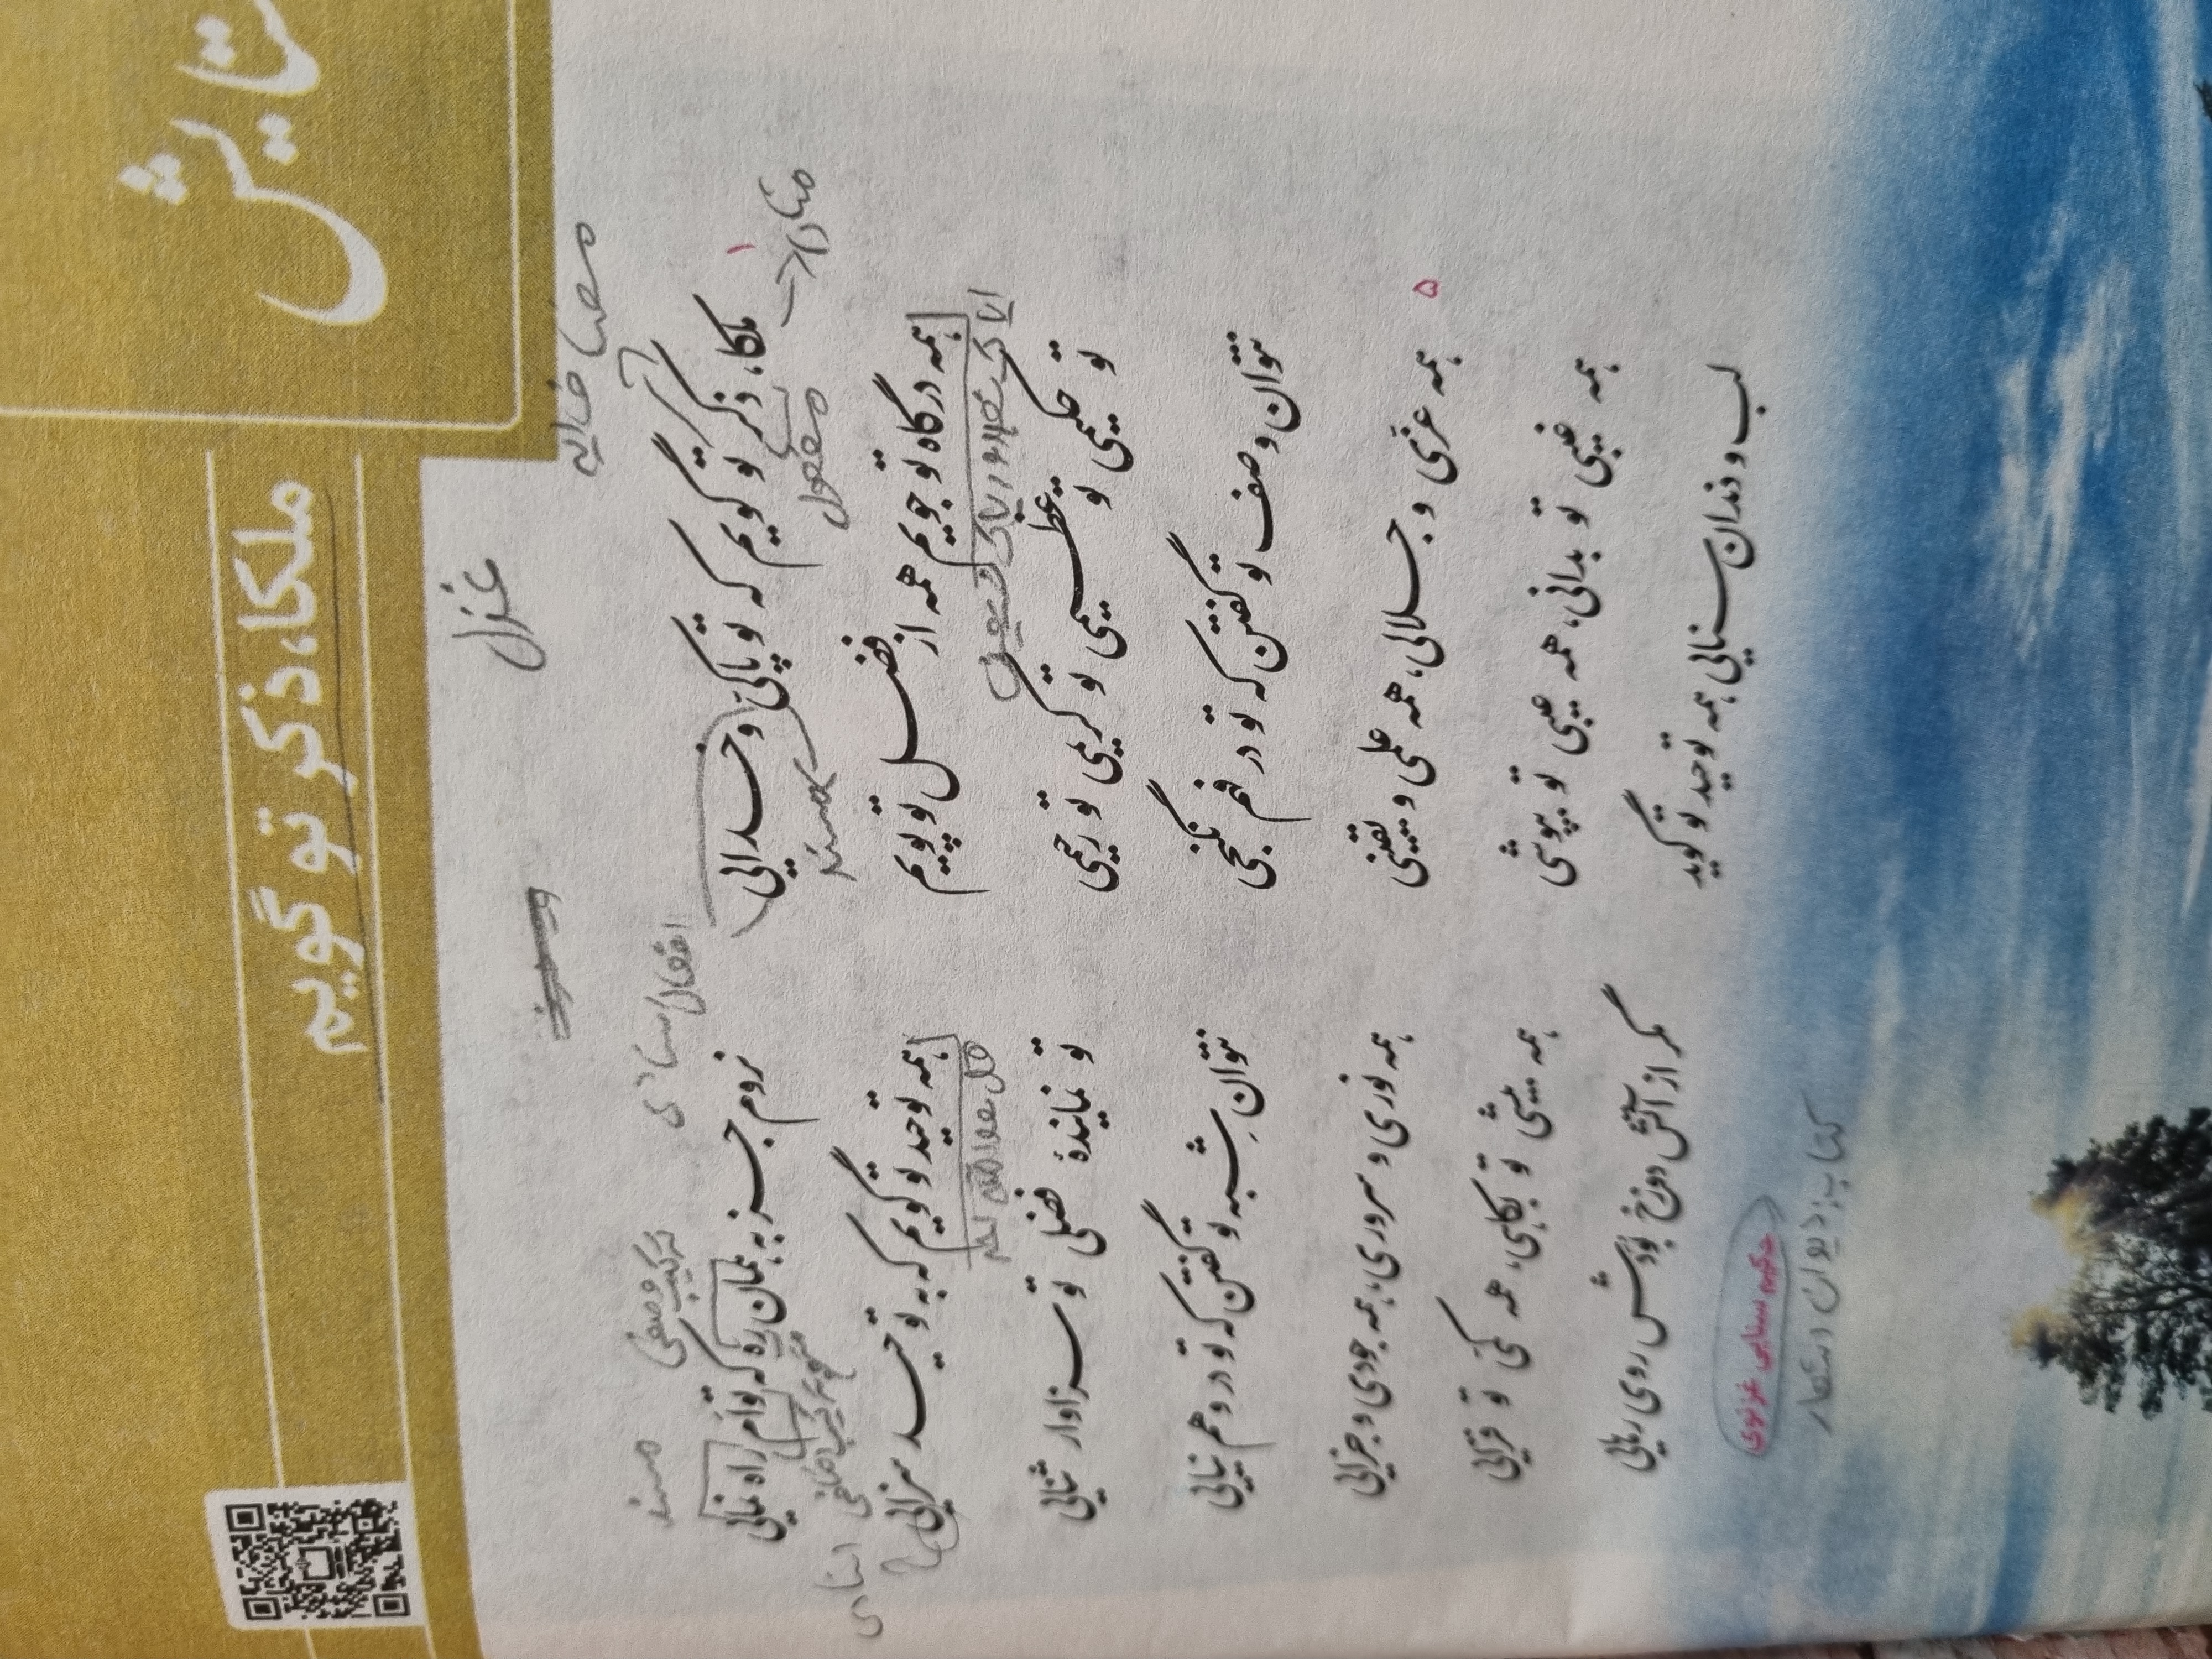 ستایش
ملکا، ذکر تو گویم
غزل
مضاف الیه
افعال اسنادی ترکیب وصفی مسند
۱ ملکا، ذکر تو گویم که تو پاکیّ و خدایی نروم جز به همان ره که توام راه نمایی
منادا مفعول مسند ترکیب اضافی اسنادی
همه درگاه تو جویم همه از فضل تو پویم همه توحید تو گویم که به توحید سزایی
ایاک نعبد و ایاک نستعین قل هو الله احد
تو حکیمی تو عظیمی تو کریمی تو رحیمی تو نمایندهٔ فضلی تو سزاوار ثنایی
نتوان وصف تو گفتن که تو در فهم نگنجی نتوان شِبه تو گفتن که تو در وهم نیایی
۵ همه عزّی و جلالی، همه علمی و یقینی همه نوری و سروری، همه جودی و جزایی
همه غیبی تو بدانی، همه عیبی تو بپوشی همه بیشی تو بکاهی، همه کمّی تو فزایی
لب و دندان سنایی همه توحید تو گوید مگر از آتش دوزخ بُوَدش روی رهایی
حکیم سنایی غزنوی
کتاب: دیوان اشعار